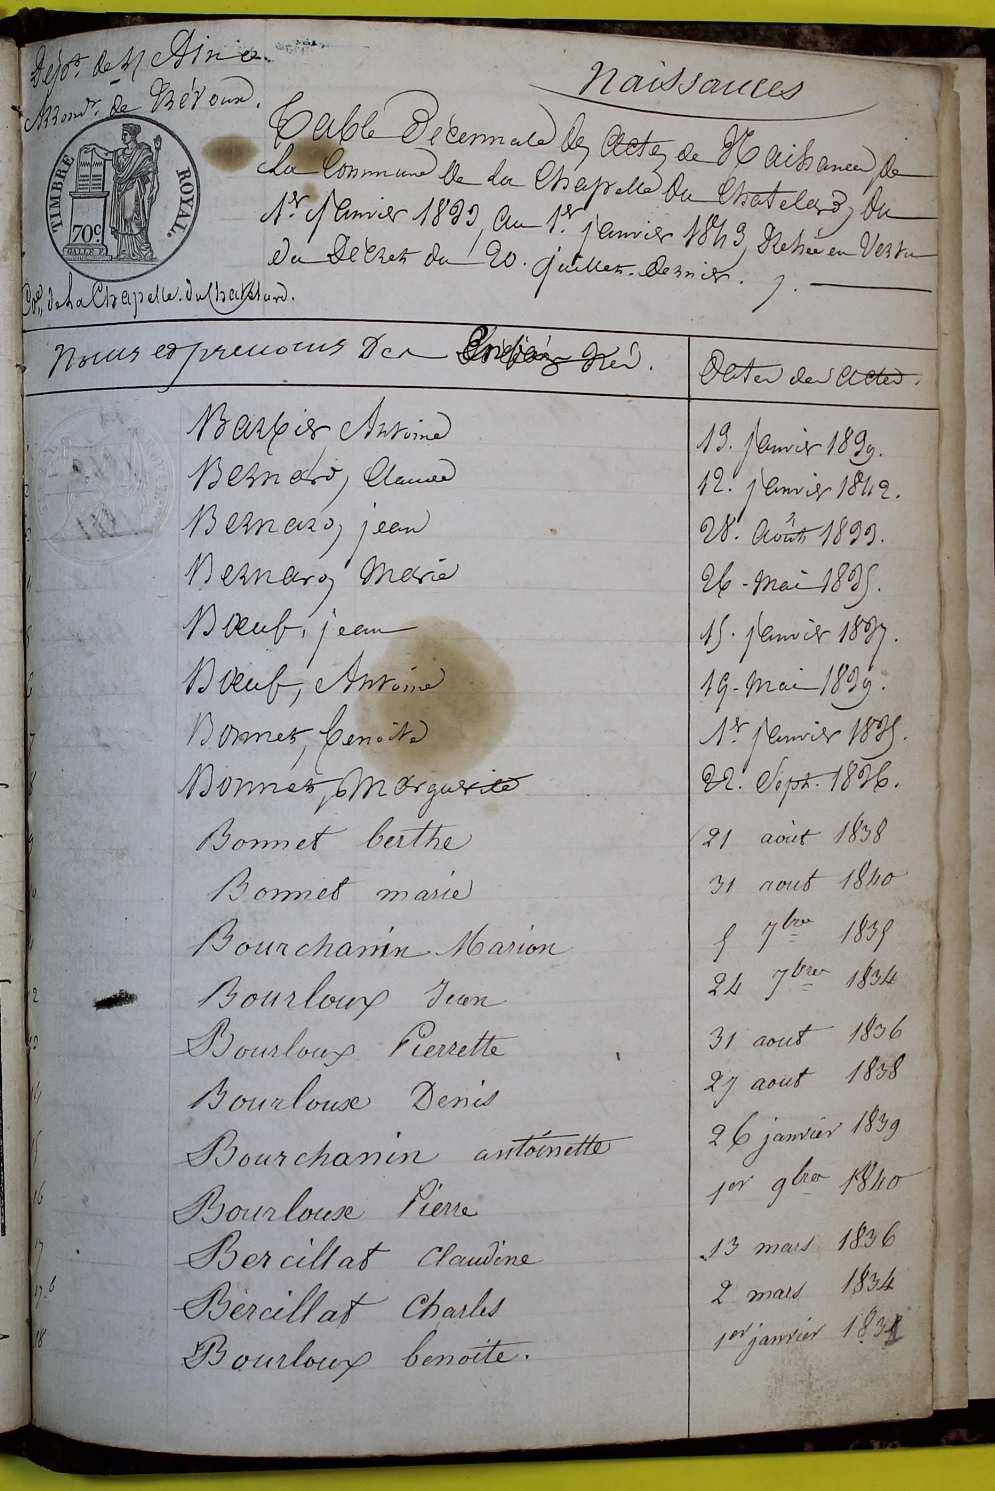 Dép.t de l'Ain
Arrond.t de Trévoux.
TIMBRE ROYAL.
70c
Naissances
Table Décennale des actes de Naissances de
La Commune de La Chapelle du Chatelard, du
1er janvier 1833, au 1er janvier 1843, en Vertu
du Décret du 20. juillet dernier.
C.ne de La Chapelle du Chatelard.
Noms et prenoms Des Nés.
Dates des actes.
Barbier Antoine 13. janvier 1839.
Bernard, Claude 12. janvier 1842.
Bernard, jean 28. Août 1833.
Bernard, Marie 26 - Mai 1835.
Bœuf, jean 15. janvier 1837.
Bœuf, Antoine 19 - Mai 1839.
Bonnet, benoite 1er janvier 1835.
Bonnet, Marguerite 22. Sept. 1836.
Bonnet berthe 21 août 1838
Bonnet marie 31 aout 1840
Bourchanin Marion 5 7bre 1835
Bourloux Jean 24 7bre 1834
Bourloux Pierrette 31 aout 1836
Bourloux Denis 27 aout 1838
Bourchanin antoinette 26 janvier 1839
Bourloux Pierre 1er 9bre 1840
Bercillat Claudine 13 mars 1836
Bercillat Charles 2 mars 1834
Bourloux benoite. 1er janvier